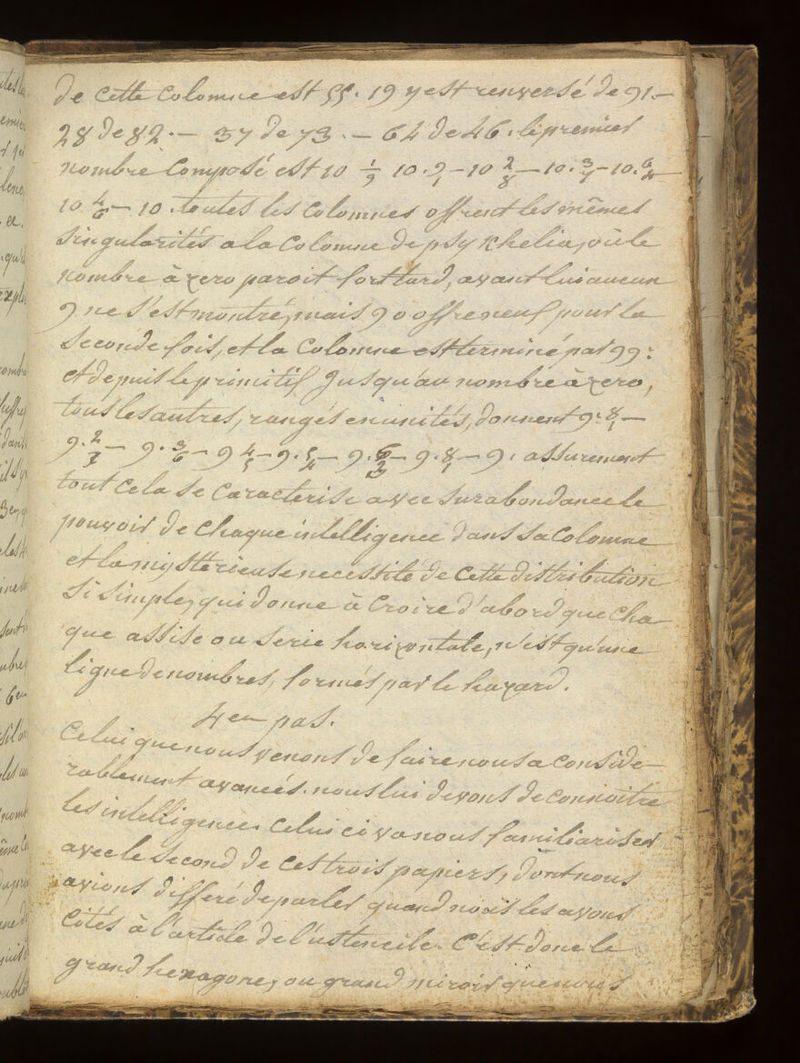 de cette colomne est 55. 19 y est renversé de 91.—
28 de 82.— 37 de 73.— 64 de 46. le premier
nombre composé est 10 1/9 10. 9/1 — 10 2/8 — 10. 3/7 — 10. 6/4 —
10 4/6 — 10. toutes les colomnes offrent les mêmes
singularités a la colomne de psykhelia, où le
nombre à zero paroit fort tard, avant lui aucun
9 ne s'est montré, mais 90 offre neuf pour la
seconde fois, et la colomne est terminé par 99:
et depuis le primitif jusqu'au nombre à zero,
tous les autres, rangés en unités, donnent 9. 8/1 —
9. 2/7 — 9. 3/6 — 9 4/5 — 9. 5/4 — 9. 6/3 — 9. 8/1 — 9. assurement
tout cela se caracterise avec surabondance le
pouvoir de chaque intelligence dans sa colomne
et la mystérieuse necessité de cette distribution
si simple, qui donne à croire d'abord que cha
que assise ou serie horizontale, n'est qu'une
ligne de nombres, formés par le hazard.
4em pas.
Celui que nous venons de faire nous a conside—
rablement avancés. nous lui devons de connoitre
les intelligences. celui ci va nous familiariser
avec le second de ces trois papiers, dont nous
avions differé de parler quand nous les avons
cités à l'article de l'ustencile. C'est donc le
grand hexagone, ou grand miroir que nous